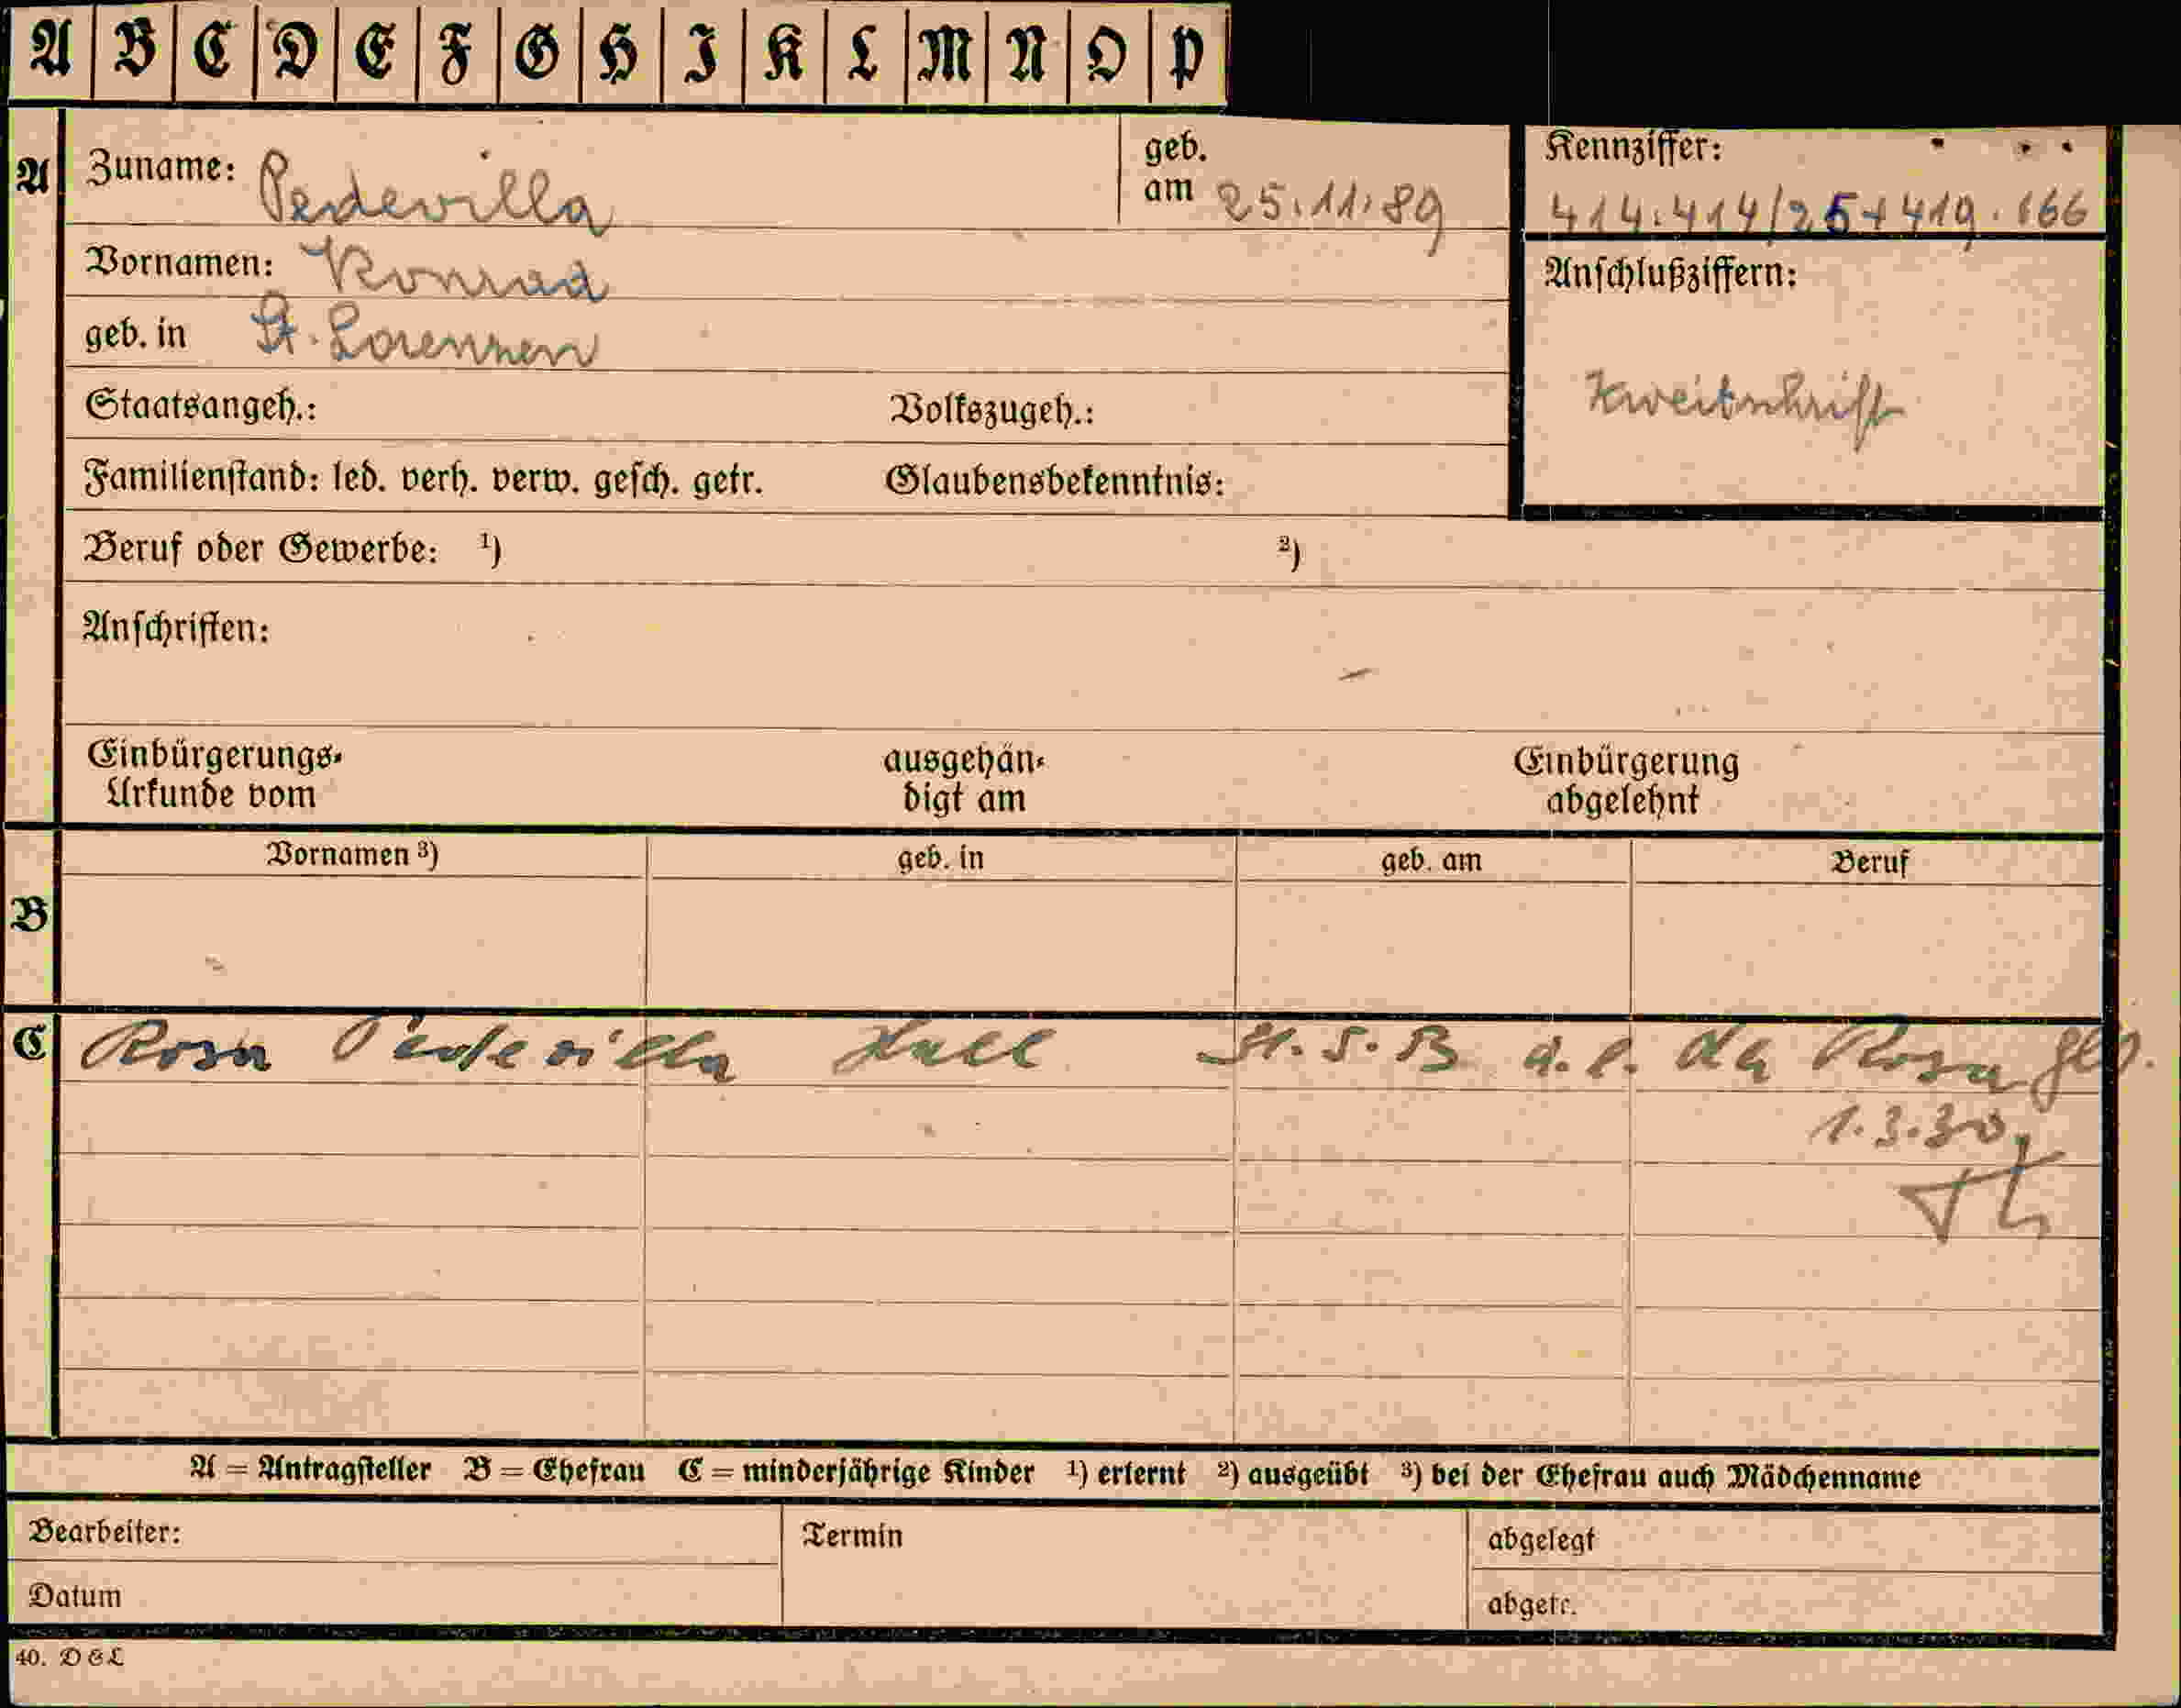 A B C D E F G H I K L M N O P
A
Zuname: Pedevilla
geb. am 25.11.89
Kennziffer:
414.414/25+419.166
Vornamen: Konrad
Anschlußziffern:
geb. in St. Lorenzen
Zweitschrift
Staatsangeh.: Volkszugeh.:
Familienstand: led. verh. verw. gesch. getr. Glaubensbekenntnis:
Beruf oder Gewerbe: 1) 2)
Anschriften:
Einbürgerungs- ausgehän- Einbürgerung
Urkunde vom digt am abgelehnt
Vornamen 3) geb. in geb. am Beruf
B
C Rosa Pedevilla Hall St. S. B a. l. Rosa
1.3.30.
A = Antragsteller B = Ehefrau C = minderjährige Kinder 1) erlernt 2) ausgeübt 3) bei der Ehefrau auch Mädchenname
Bearbeiter: Termin abgelegt
Datum abgetr.
40. D & L